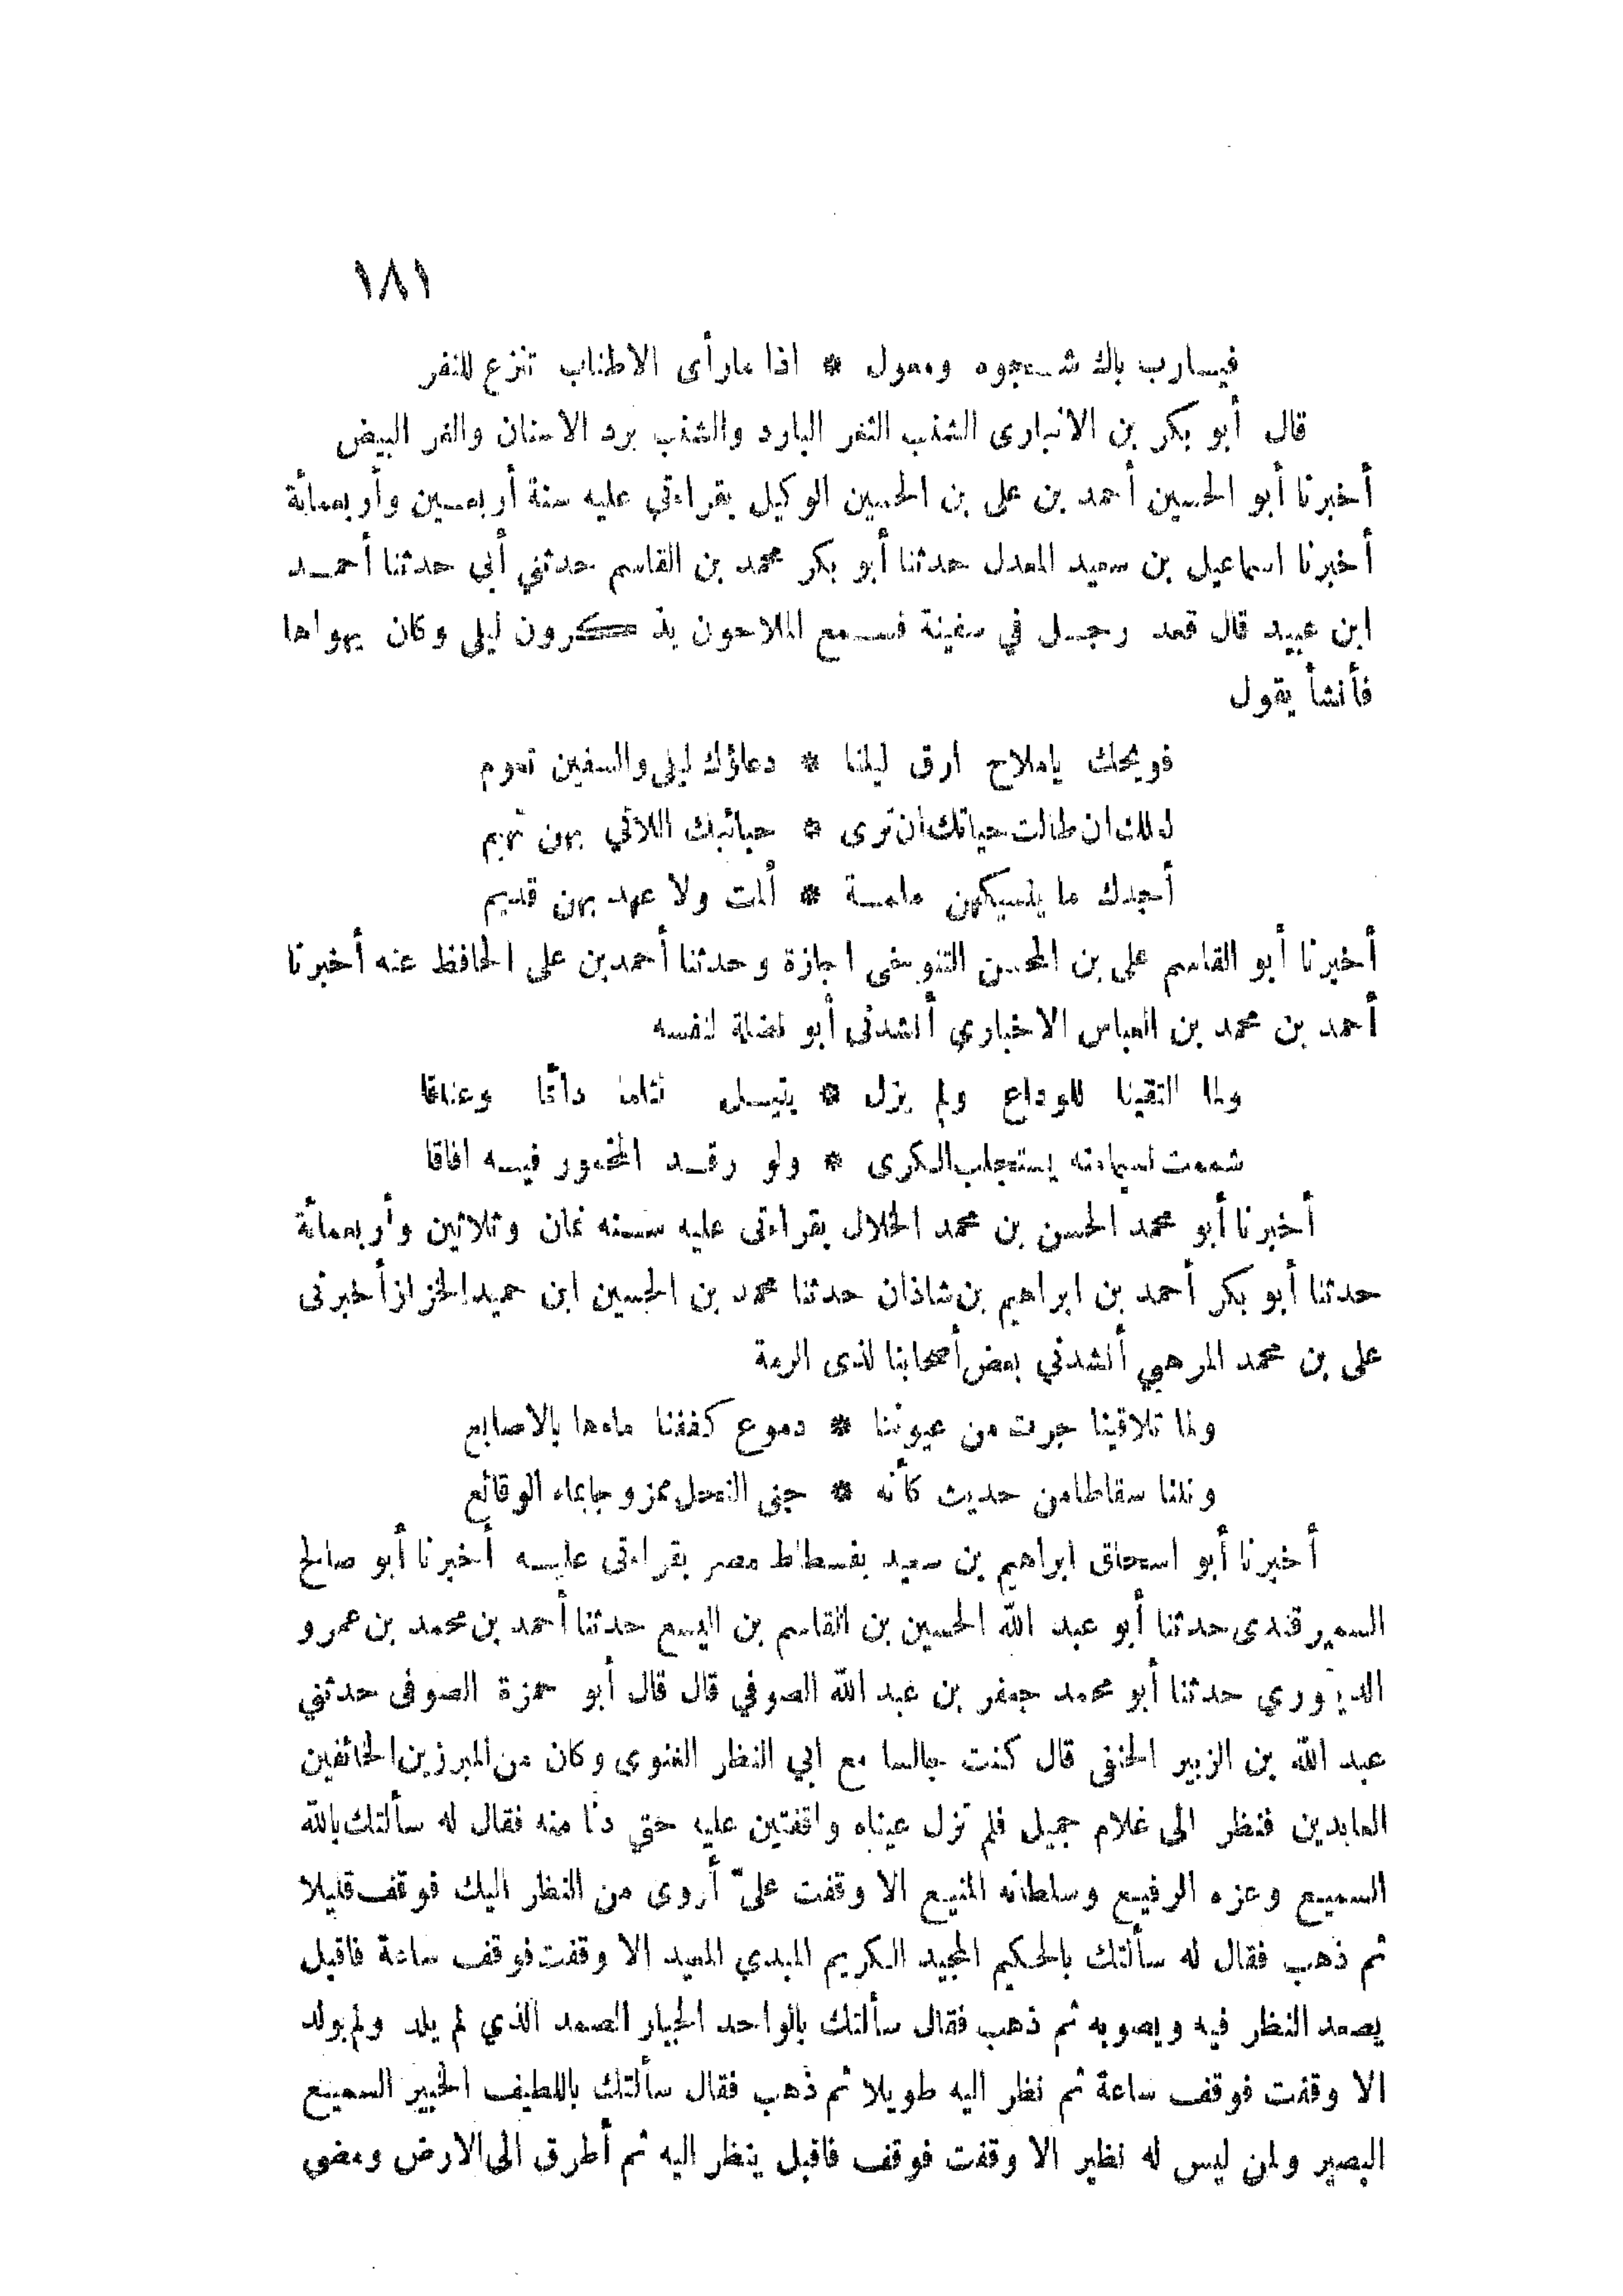 ١٨١
فيـارب باك شـجوه ومعول * اذا مارأى الاطناب تنزع للنفر
قال أبو بكر بن الانبارى الشنب الثغر البارد والشنب برد الاسنان والغر البيض
أخبرنا أبو الحسين أحمد بن على بن الحسين الوكيل بقراءتي عليه سنة أربعـين وأربعمائة
أخبرنا اسماعيل بن سعيد المعدل حدثنا أبو بكر محمد بن القاسم حدثني أبي حدثنا أحمـد
ابن عبيد قال قعد رجـل في سفينة فسـمع الملاحون يذكرون ليلى وكان يهواها
فأنشأ يقول
فويحك ياملاح ارق ليلنا * دعاؤك ليلى والسفين تعوم
لعلك ان طالت حياتك ان ترى * حبائبك اللاتي بهن تهيم
أجدك ما ينسيكهن ملمـة * ألمت ولا عهد بهن قديم
أخبرنا أبو القاسم على بن المحسن التنوخى اجازة وحدثنا أحمد بن على الحافظ عنه أخبرنا
أحمد بن محمد بن العباس الاخباري أنشدنى أبو نضلة لنفسه
ولما التقينا للوداع ولم يزل * ينيـلى لثاما دائما وعناقا
شممت نسيما منه يستجلب الكرى * ولو رقـد المخمور فيـه افاقا
أخبرنا أبو محمد الحسن بن محمد الخلال بقراءتى عليه سـنه ثمان وثلاثين وأربعمائة
حدثنا أبو بكر أحمد بن ابراهيم بن شاذان حدثنا محمد بن الحسين ابن حميد الخزاز أخبرنى
على بن محمد المرهبي أنشدني بعض أصحابنا لذى الرمة
ولما تلاقينا جرت من عيوننا * دموع كففنا ماءها بالاصابع
ونلنا سقاطا من حديث كأنه * جنى النحل ممزوجا بماء الوقائع
أخبرنا أبو اسحاق ابراهيم بن سعيد بفسطاط مصر بقراءتى عليـه أخبرنا أبو صالح
السمرقندى حدثنا أبو عبد الله الحسين بن القاسم بن اليسع حدثنا أحمد بن محمد بن عمرو
الدينوري حدثنا أبو محمد جعفر بن عبد الله الصوفي قال قال أبو حمزة الصوفى حدثني
عبد الله بن الزبير الحنفى قال كنت جالسا مع ابي النظر الغنوى وكان من المبرزين الخائفين
العابدين فنظر الى غلام جميل فلم تزل عيناه واقفتين عليه حتي دنا منه فقال له سألتك بالله
السميـع وعزه الرفيـع وسلطانه المنيـع الا وقفت علىّ أروى من النظر اليك فوقف قليلا
ثم ذهب فقال له سألتك بالحكيم المجيد الكريم المبدي المعيد الا وقفت فوقف ساعة فاقبل
يصعد النظر فيه ويصوبه ثم ذهب فقال سألتك بالواحد الجبار الصمد الذي لم يلد ولم يولد
الا وقفت فوقف ساعة ثم نظر اليه طويلا ثم ذهب فقال سألتك باللطيف الخبير السميـع
البصير ولمن ليس له نظير الا وقفت فوقف فاقبل ينظر اليه ثم أطرق الى الارض ومضى